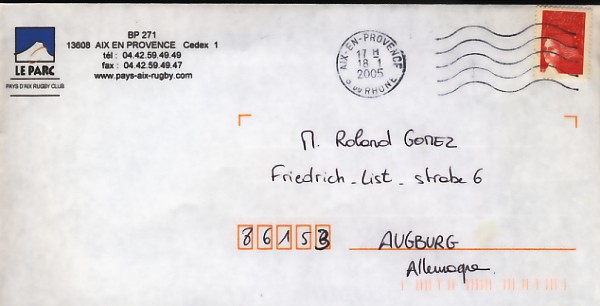 BP 271
13608 AIX EN PROVENCE Cedex 1
tél : 04.42.59.49.49
fax : 04.42.59.49.47
www.pays-aix-rugby.com
LE PARC
PAYS D'AIX RUGBY CLUB
AIX-EN-PROVENCE
17 H
18 1
2005
B. DU RHONE
M. Roland GOMEZ
Friedrich-List-strabe 6
86153 AUGBURG
Allemagne